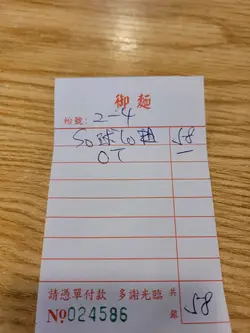 御麵
枱號: 2-4
50 球 10 粗 58
OT —
請憑單付款 多謝光臨 共銀 58
No.024586